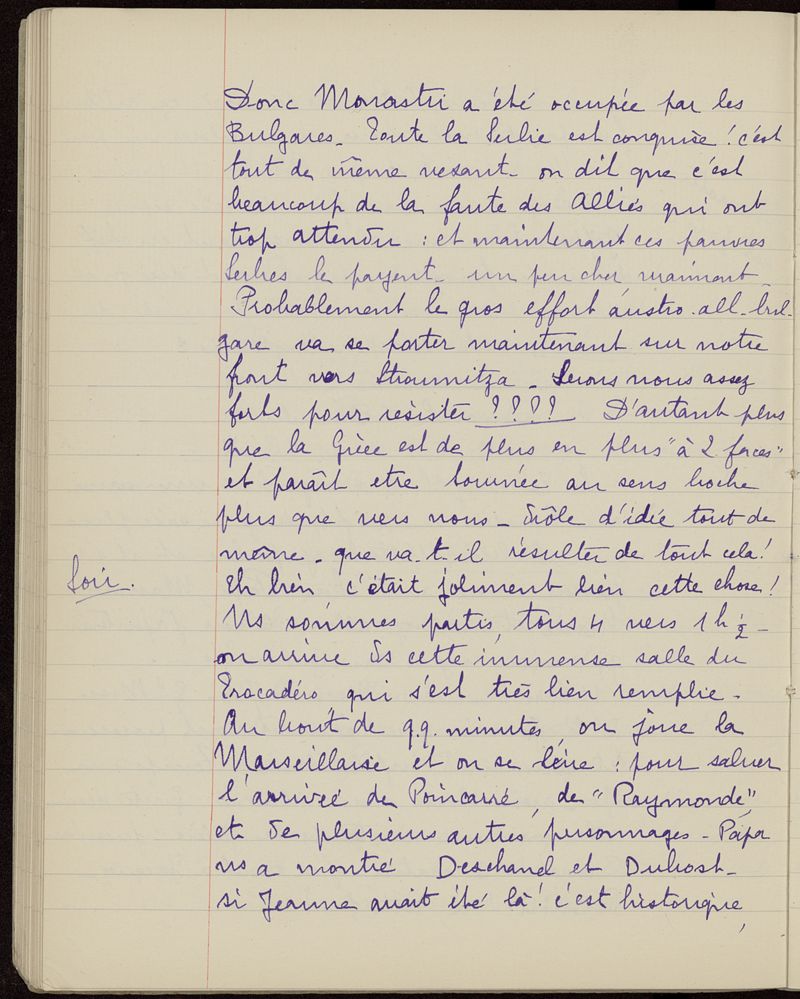 Donc Monastir a été occupée par les
Bulgares - Toute la Serbie est conquise ! c'est
tout de même vexant - on dit que c'est
beaucoup de la faute des Alliés qui ont
trop attendu : et maintenant ces pauvres
Serbes le payent - un peu cher, vraiment -
Probablement le gros effort austro-all-bul-
gare va se porter maintenant sur notre
front vers Stroumitza - Serons nous assez
forts pour résister ???? D'autant plus
que la Grèce est de plus en plus "à 2 faces"
et paraît etre tournée au sens boche
plus que vers nous - Drôle d'idée tout de
même - que va-t-il résulter de tout cela !
Soir.
Eh bien c'était joliment bien cette chose !
Ns sommes partis, tous 4 vers 1h ½ -
on arrive ds cette immense salle du
Trocadéro qui s'est très bien remplie -
Au bout de q.q. minutes, on joue la
Marseillaise et on se lève : pour saluer
l'arrivée de Poincarré, de "Raymonde",
et de plusieurs autres personnages - Papa
ns a montré Deschanel et Dubost -
si Jeanne avait été là ! c'est historique,